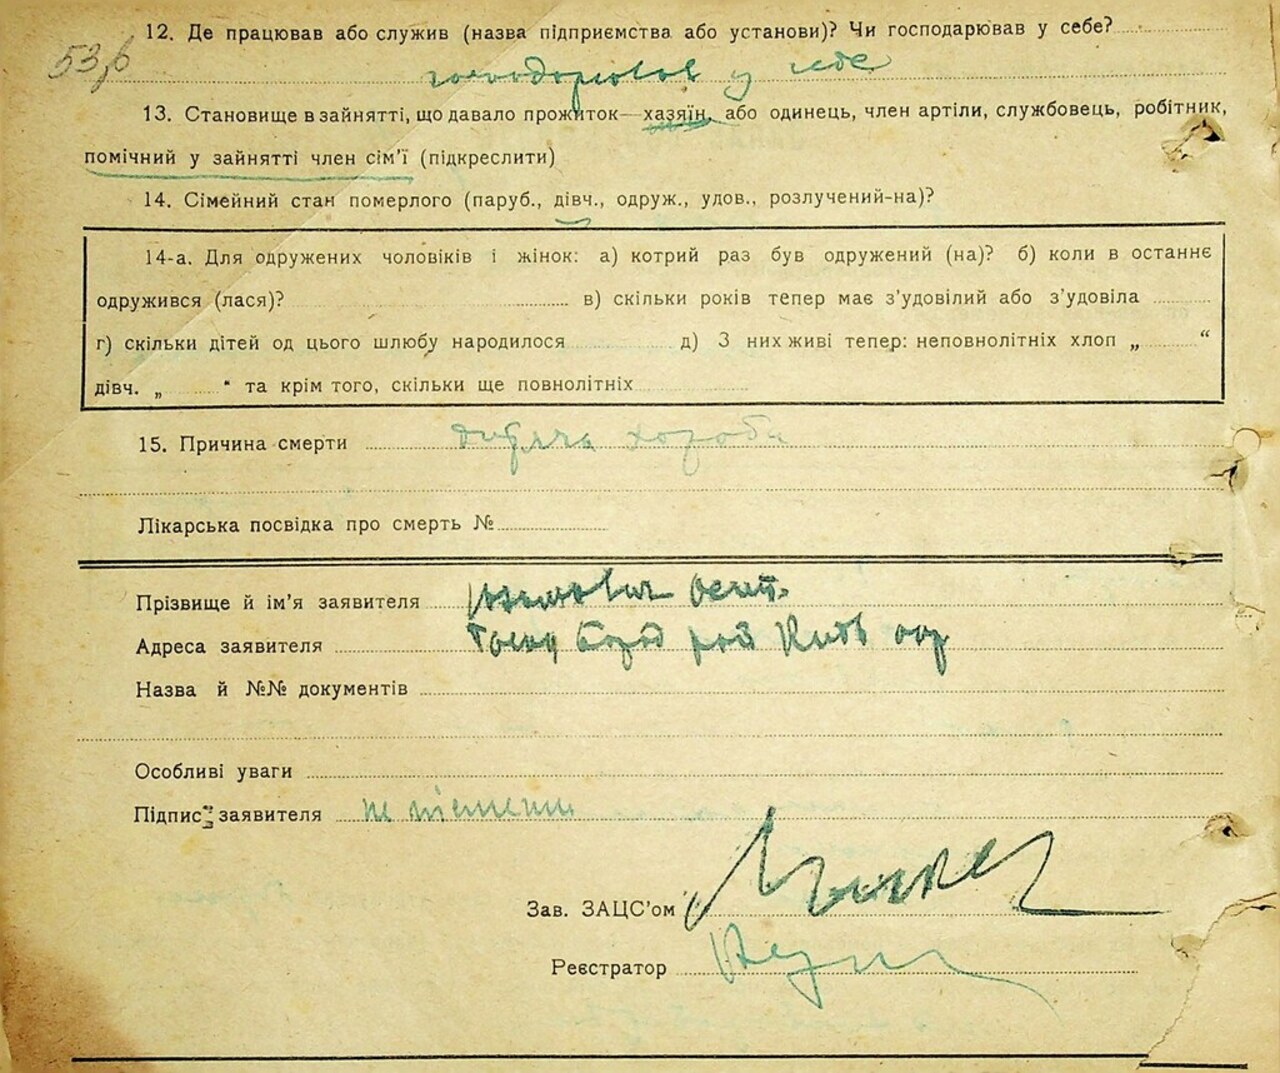 53,б
12. Де працював або служив (назва підприємства або установи)? Чи господарював у себе?
господарював у себе
13. Становище в зайнятті, що давало прожиток—хазяїн, або одинець, член артілі, службовець, робітник,
помічний у зайнятті член сім'ї (підкреслити)
14. Сімейний стан померлого (паруб., дівч., одруж., удов., розлучений-на)?
14-а. Для одружених чоловіків і жінок: а) котрий раз був одружений (на)? б) коли в останнє
одружився (лася)? в) скільки років тепер має з'удовілий або з'удовіла
г) скільки дітей од цього шлюбу народилося д) З них живі тепер: неповнолітніх хлоп „ “
дівч. „ “ та крім того, скільки ще повнолітніх
15. Причина смерти дитяча хороба
Лікарська посвідка про смерть №
Прізвище й ім'я заявителя
Адреса заявителя
Назва й №№ документів
Особливі уваги
Підпис заявителя не písменни
Зав. ЗАЦС'ом
Реєстратор